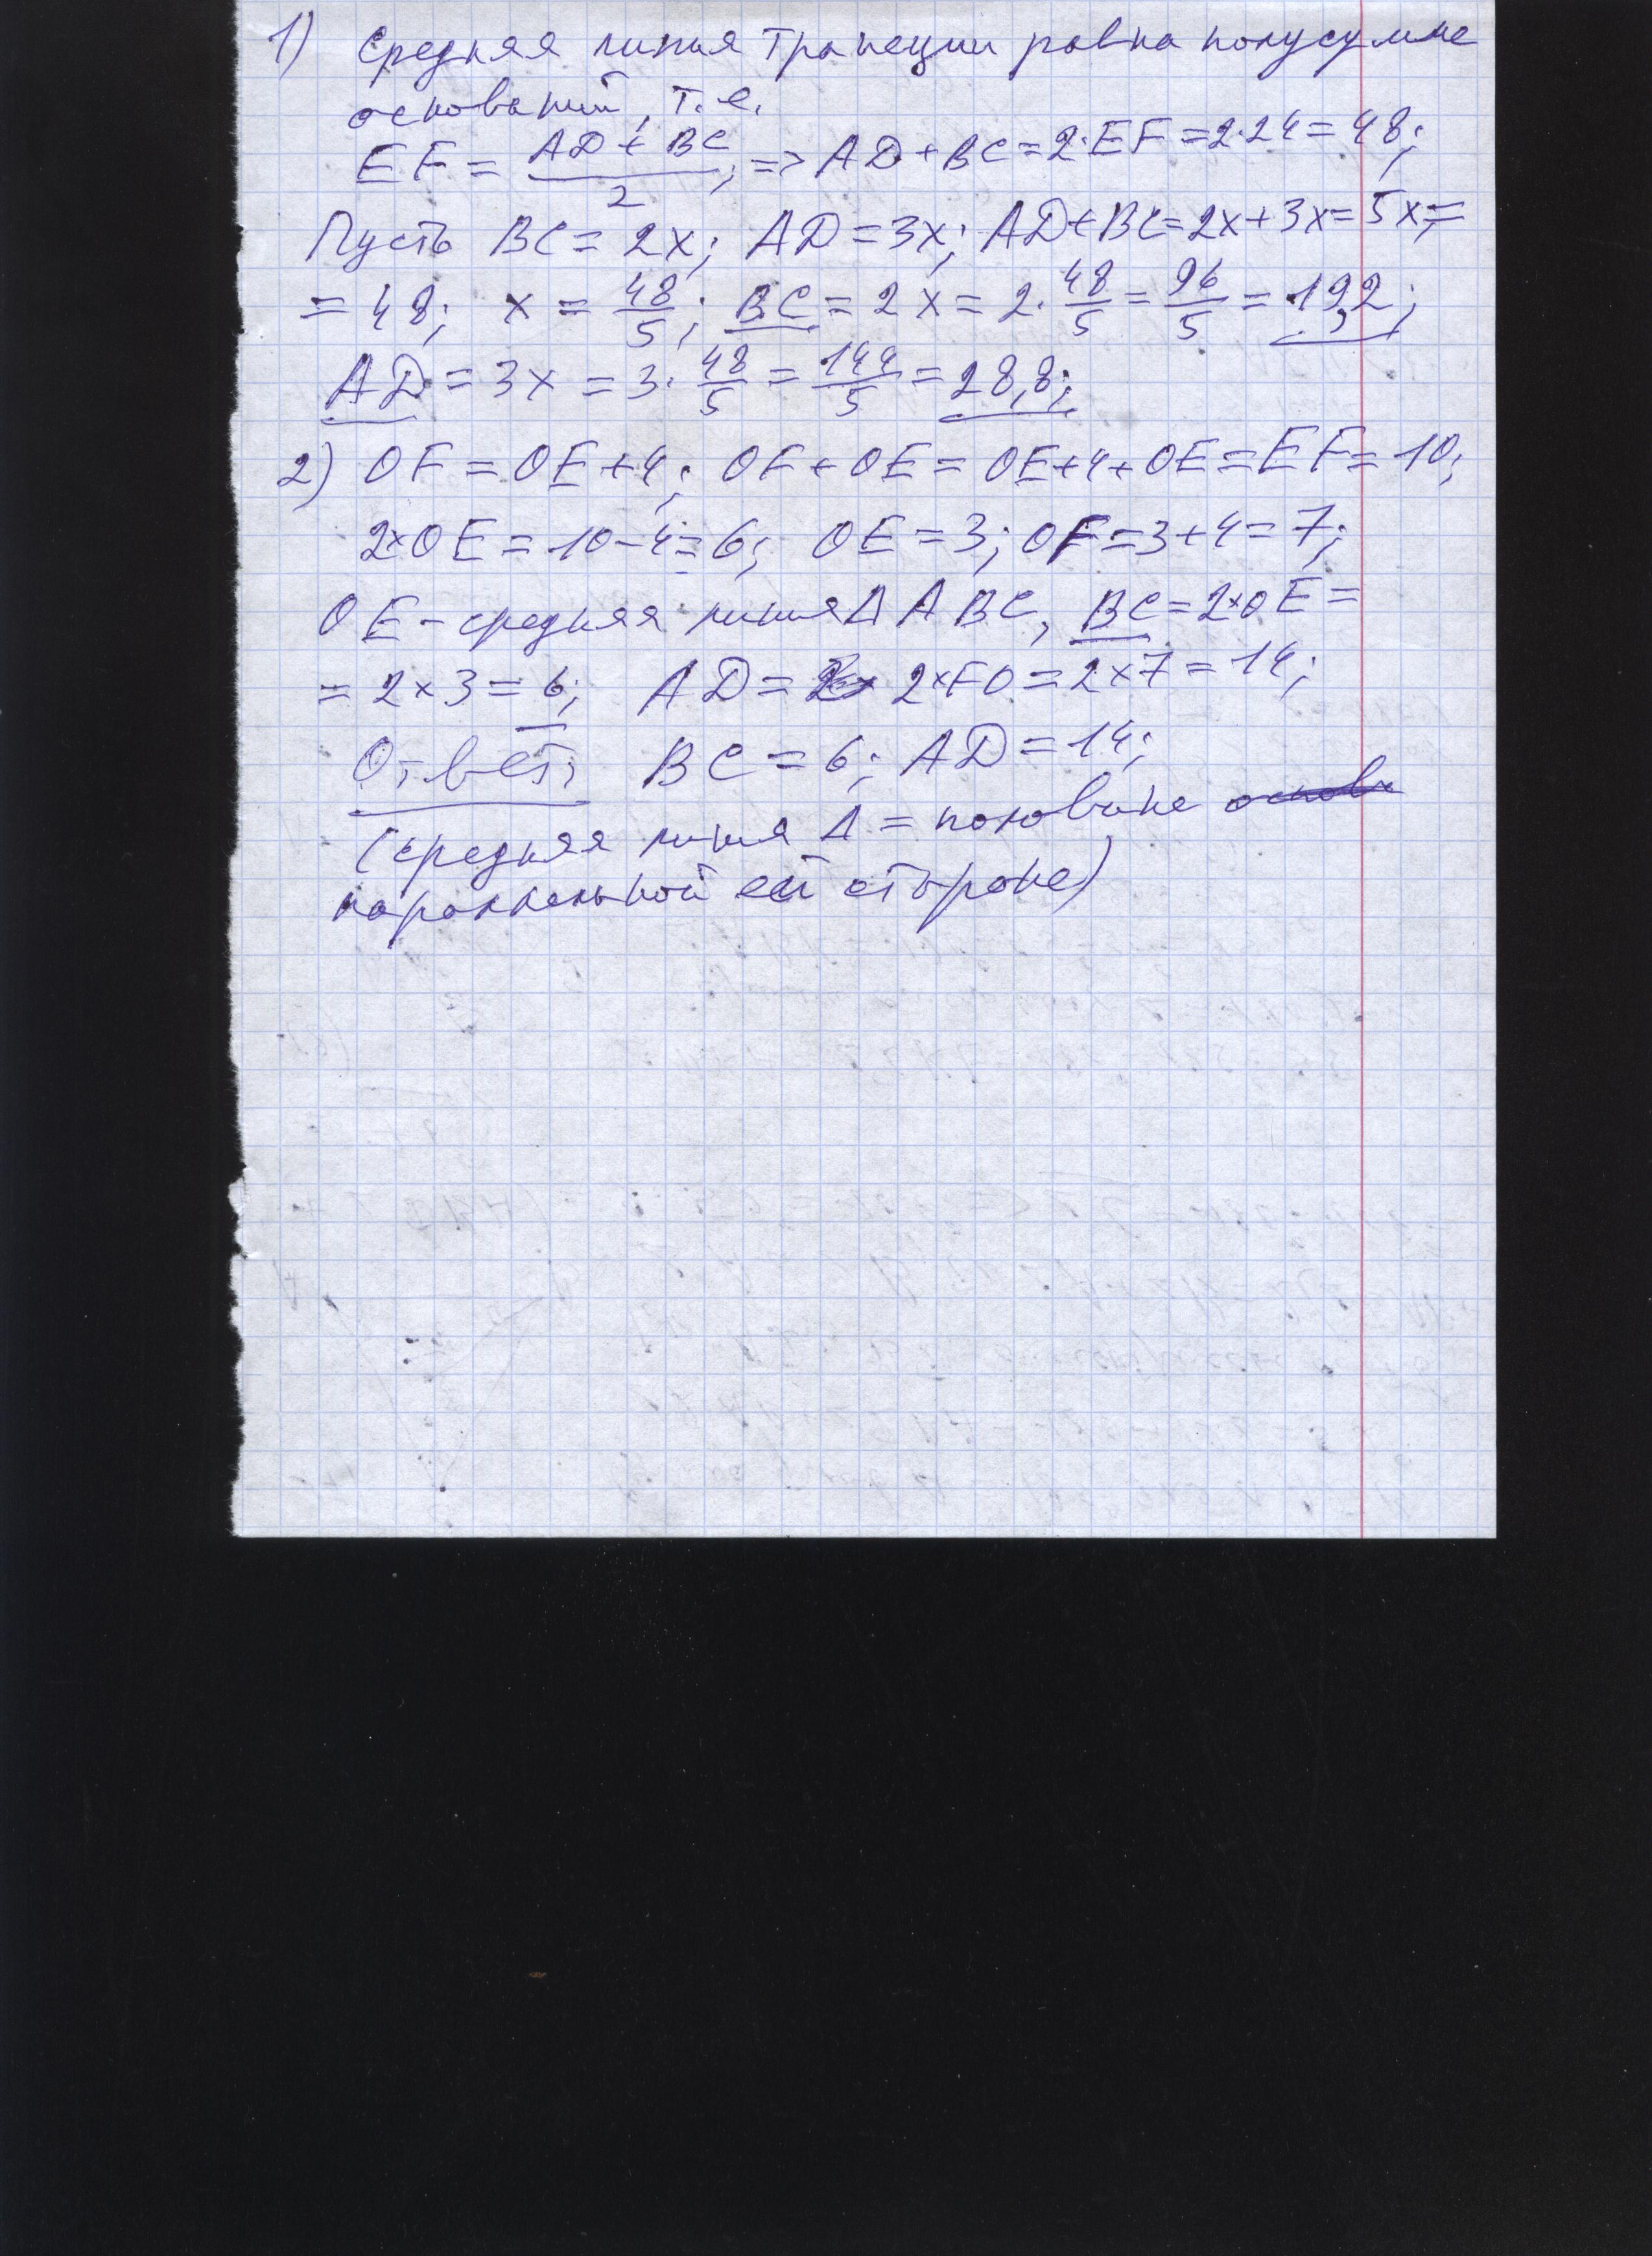 1) Средняя линия трапеции равна полусумме
оснований, т.е.
EF = (AD + BC)/2; => AD + BC = 2·EF = 2·24 = 48;
Пусть BC = 2x; AD = 3x; AD + BC = 2x + 3x = 5x =
= 48; x = 48/5; BC = 2x = 2·48/5 = 96/5 = 19,2;
AD = 3x = 3·48/5 = 144/5 = 28,8;
2) OF = OE + 4; OF + OE = OE + 4 + OE = EF = 10;
2×OE = 10 - 4 = 6; OE = 3; OF = 3 + 4 = 7;
OE - средняя линия Δ ABC, BC = 2×OE =
= 2×3 = 6; AD = 2×FO = 2×7 = 14;
Ответ: BC = 6; AD = 14;
(средняя линия Δ = половине
параллельной ей стороне)